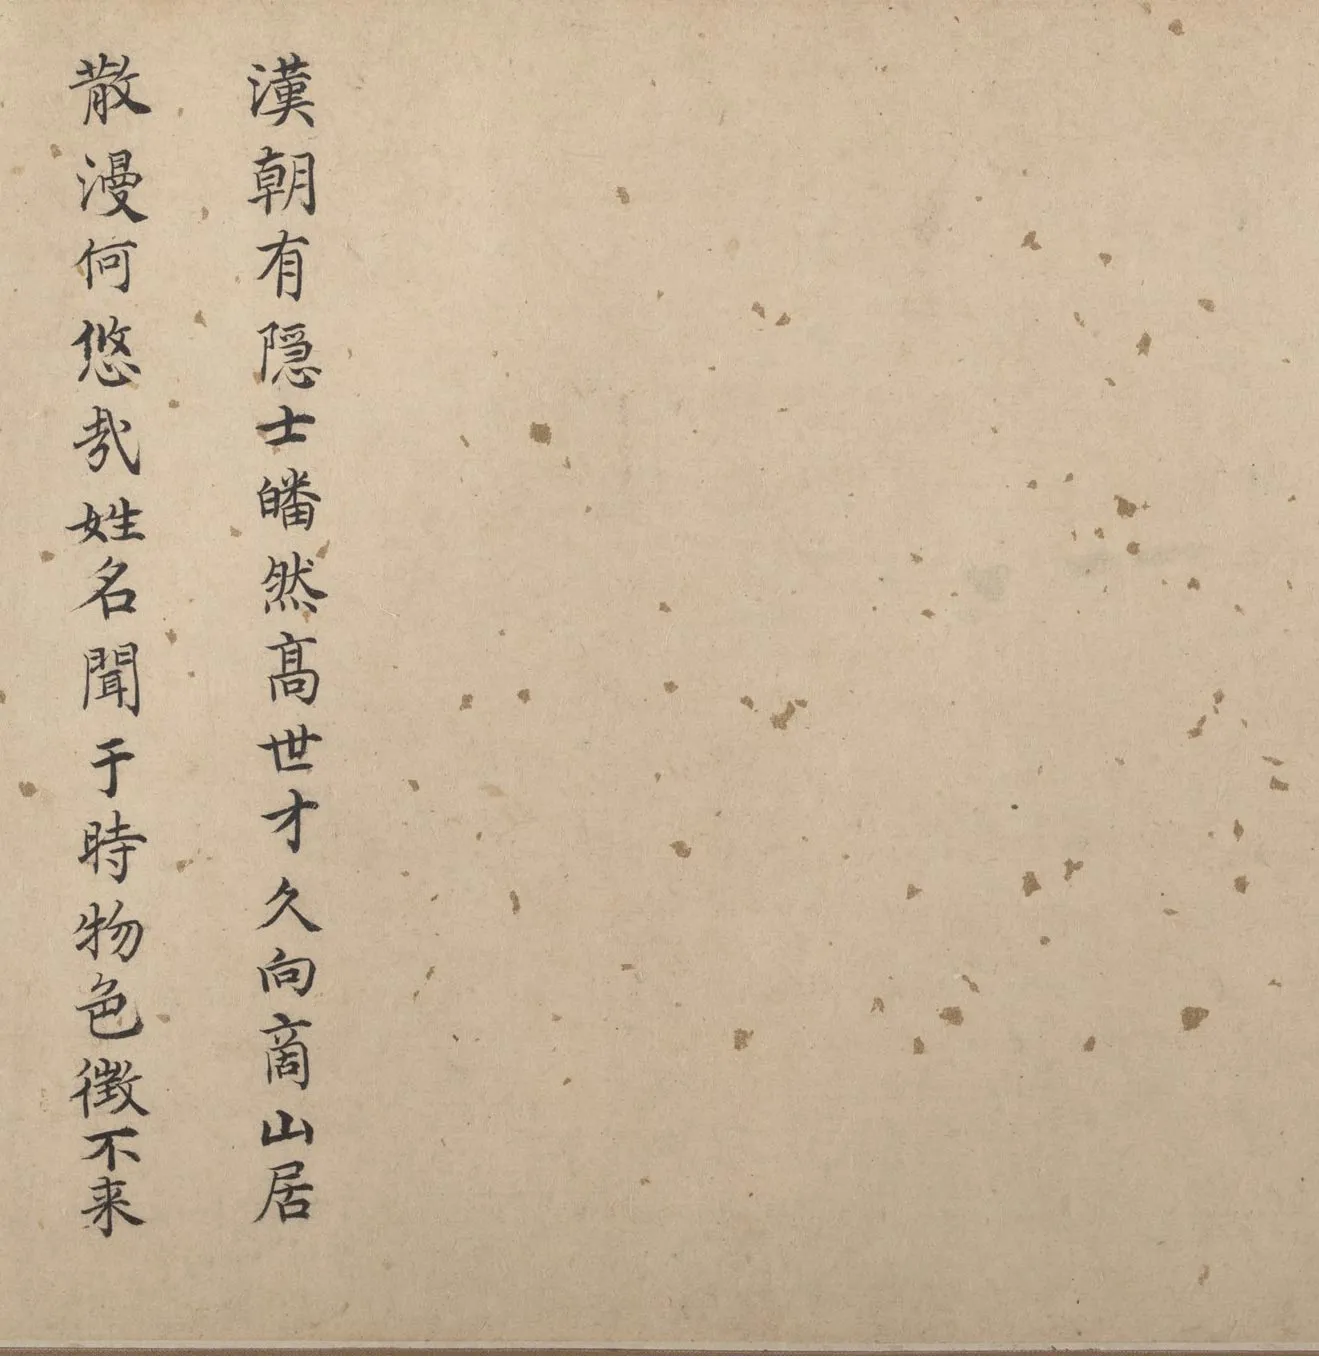 漢朝有隠士皤然髙世才久向商山居
散漫何悠哉姓名聞于時物色徴不来